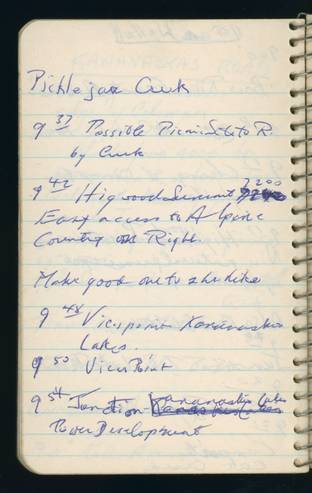 Picklejar Creek
9 37 Possible Picnic Site to R.
by Creek
9 42 Highwood Summit 7200
Easy access to Alpine
Country on Right.
Make good one to shike
9 48 Viewpoint Kananaskis
Lakes.
9 50 ViewPoint
9 54 Junction Kananaskis Lakes
Power Development